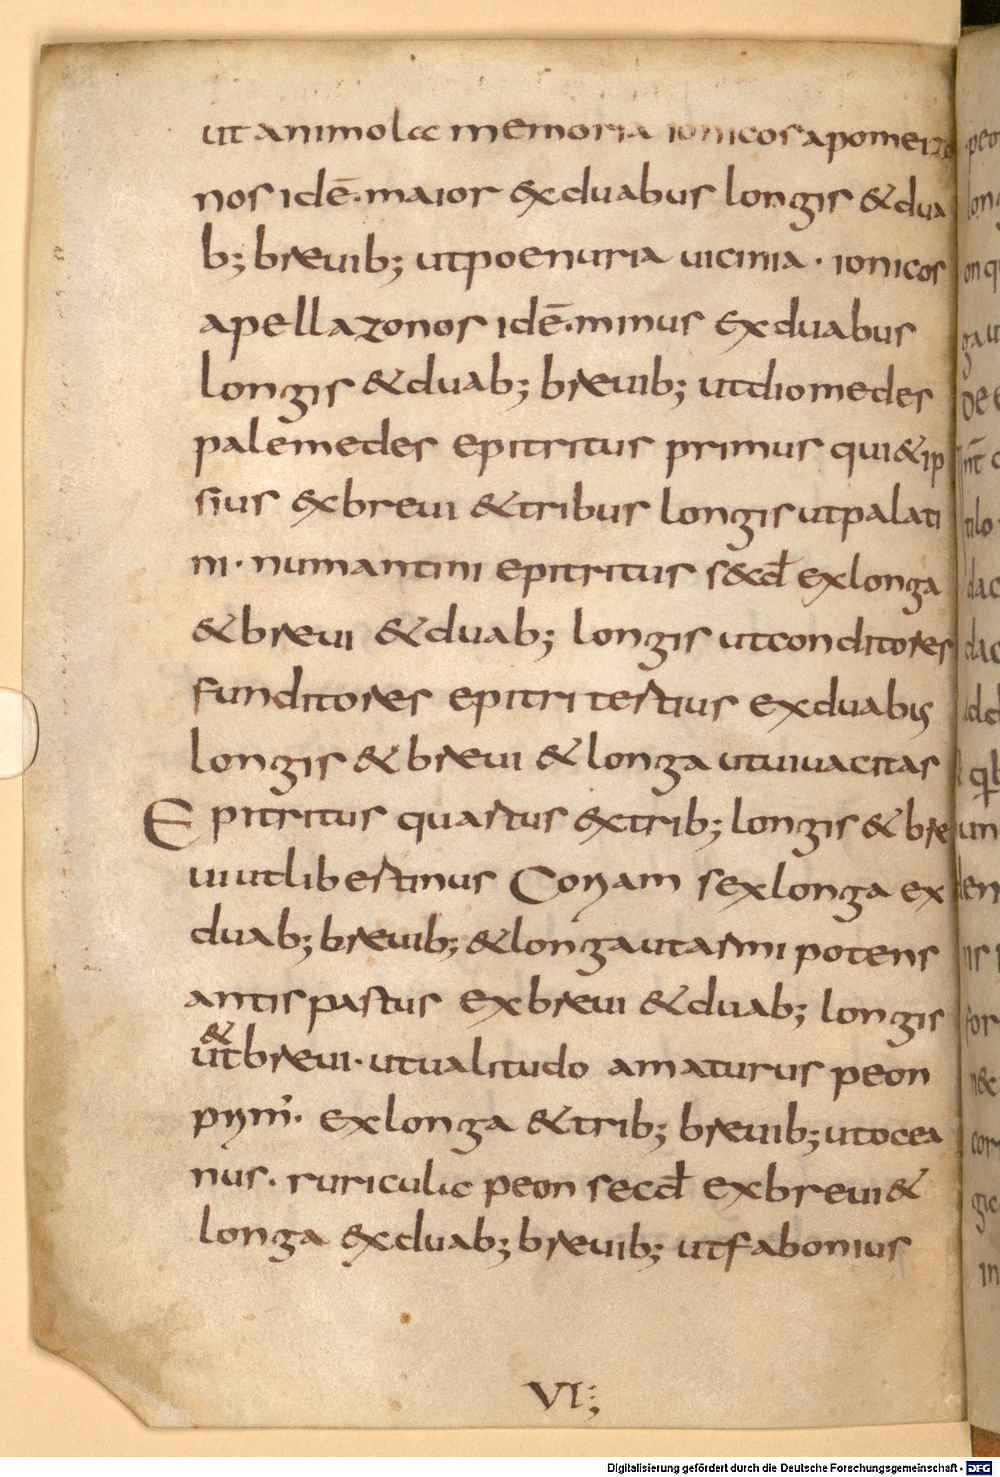 ut animolæ memoria ionicos apomeizo
nos idē· maior ex duabus longis & dua
b; breuib; ut poenuria uicinia · ionicos
apellazonos idē· minus ex duabus
longis & duab; breuib; ut diomedes
palemedes epitritus primus qui & ip
sius ex breui & tribus longis ut palati
ni · numantini epitritus secd̄ ex longa
& breui & duab; longis ut conditores
funditores epitri tertius ex duabus
longis & breui & longa ut uiuacitas
Epitritus quartus ex trib; longis & bre
ui ut libertinus Coriam s ex longa ex
duab; breuib; & longa ut armi potens
antispastus ex breui & duab; longis
&
ut breui · ut ualitudo amaturus peon
prym̄· ex longa & trib; breuib; ut ocea
nus · ruriculæ peon secd̄ ex breui &
longa ex duab; breuib; ut fabonius
VI;
peo
lon
on q
ga u
De
Int̄
tilo
dac
dac
idd
un
den
ns
for
n&
cor
gic
in
Digitalisierung gefördert durch die Deutsche Forschungsgemeinschaft - DFG